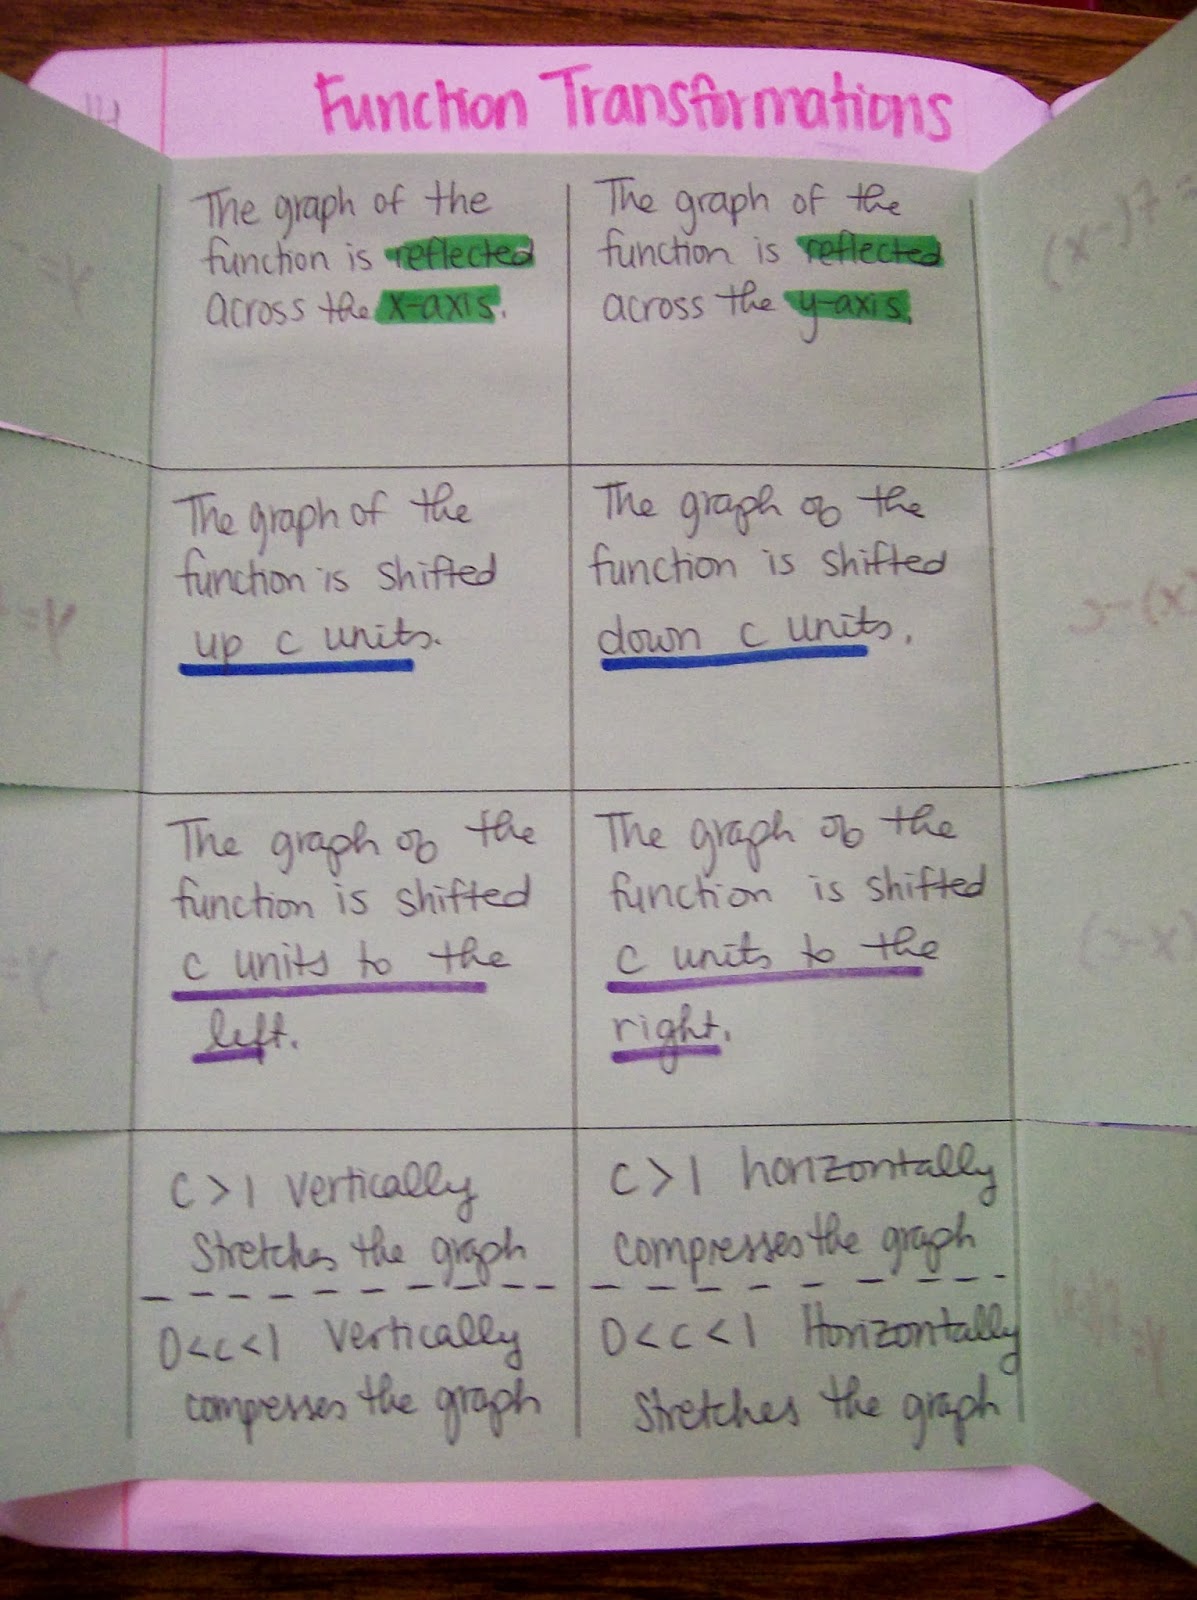 Function Transformations
The graph of the
function is reflected
across the x-axis.
The graph of the
function is reflected
across the y-axis.
The graph of the
function is shifted
up c units.
The graph of the
function is shifted
down c units.
The graph of the
function is shifted
c units to the
left.
The graph of the
function is shifted
c units to the
right.
C > 1 vertically
stretches the graph
0 < c < 1 vertically
compresses the graph
C > 1 horizontally
compresses the graph
0 < c < 1 Horizontally
stretches the graph
y=
= f(-x)
y=
(x)-c
y=
(x-c)